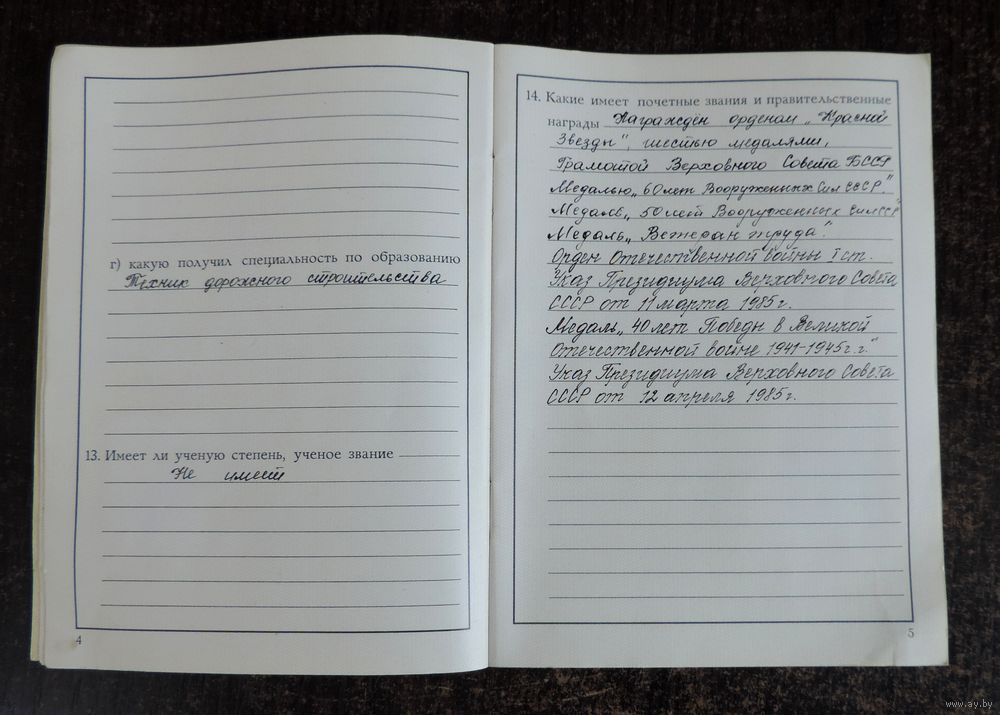 г) какую получил специальность по образованию
Техник дорожного строительства
13. Имеет ли ученую степень, ученое звание
Не имеет
4
14. Какие имеет почетные звания и правительственные
награды Награждён орденом „Красной
Звезды", шестью медалями,
Грамотой Верховного Совета БССР
Медалью „60 лет Вооруженных Сил СССР."
Медаль „50 лет Вооруженных Сил СССР"
Медаль „Ветеран труда".
Орден Отечественной войны I ст.
Указ Президиума Верховного Совета
СССР от 11 марта 1985 г.
Медаль „40 лет Победы в Великой
Отечественной войне 1941-1945 г.г."
Указ Президиума Верховного Совета
СССР от 12 апреля 1985 г.
5
www.ay.by